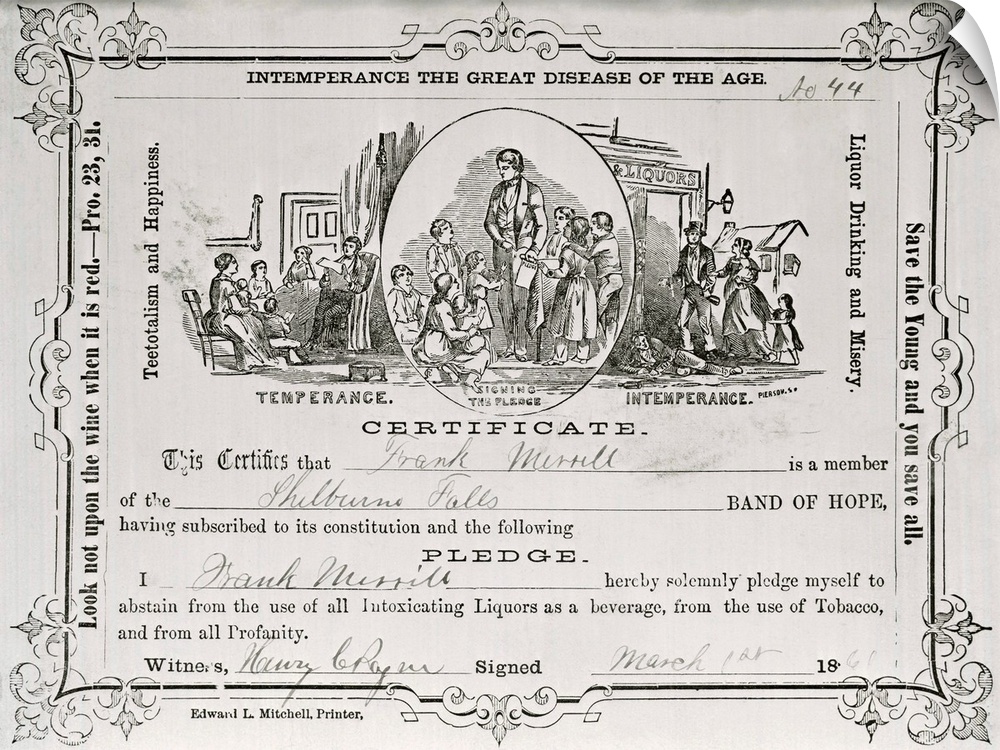 INTEMPERANCE THE GREAT DISEASE OF THE AGE.
No 44
Look not upon the wine when it is red.—Pro. 23, 31.
Teetotalism and Happiness.
Liquor Drinking and Misery.
Save the Young and you save all.
& LIQUORS
TEMPERANCE.
SIGNING
THE PLEDGE
INTEMPERANCE.
PIERSON. SC
CERTIFICATE.
This Certifies that Frank Merrill is a member
of the Shelburne Falls BAND OF HOPE,
having subscribed to its constitution and the following
PLEDGE.
I Frank Merrill hereby solemnly pledge myself to
abstain from the use of all Intoxicating Liquors as a beverage, from the use of Tobacco,
and from all Profanity.
Witness, Henry Signed March 1st 1861
Edward L. Mitchell, Printer,